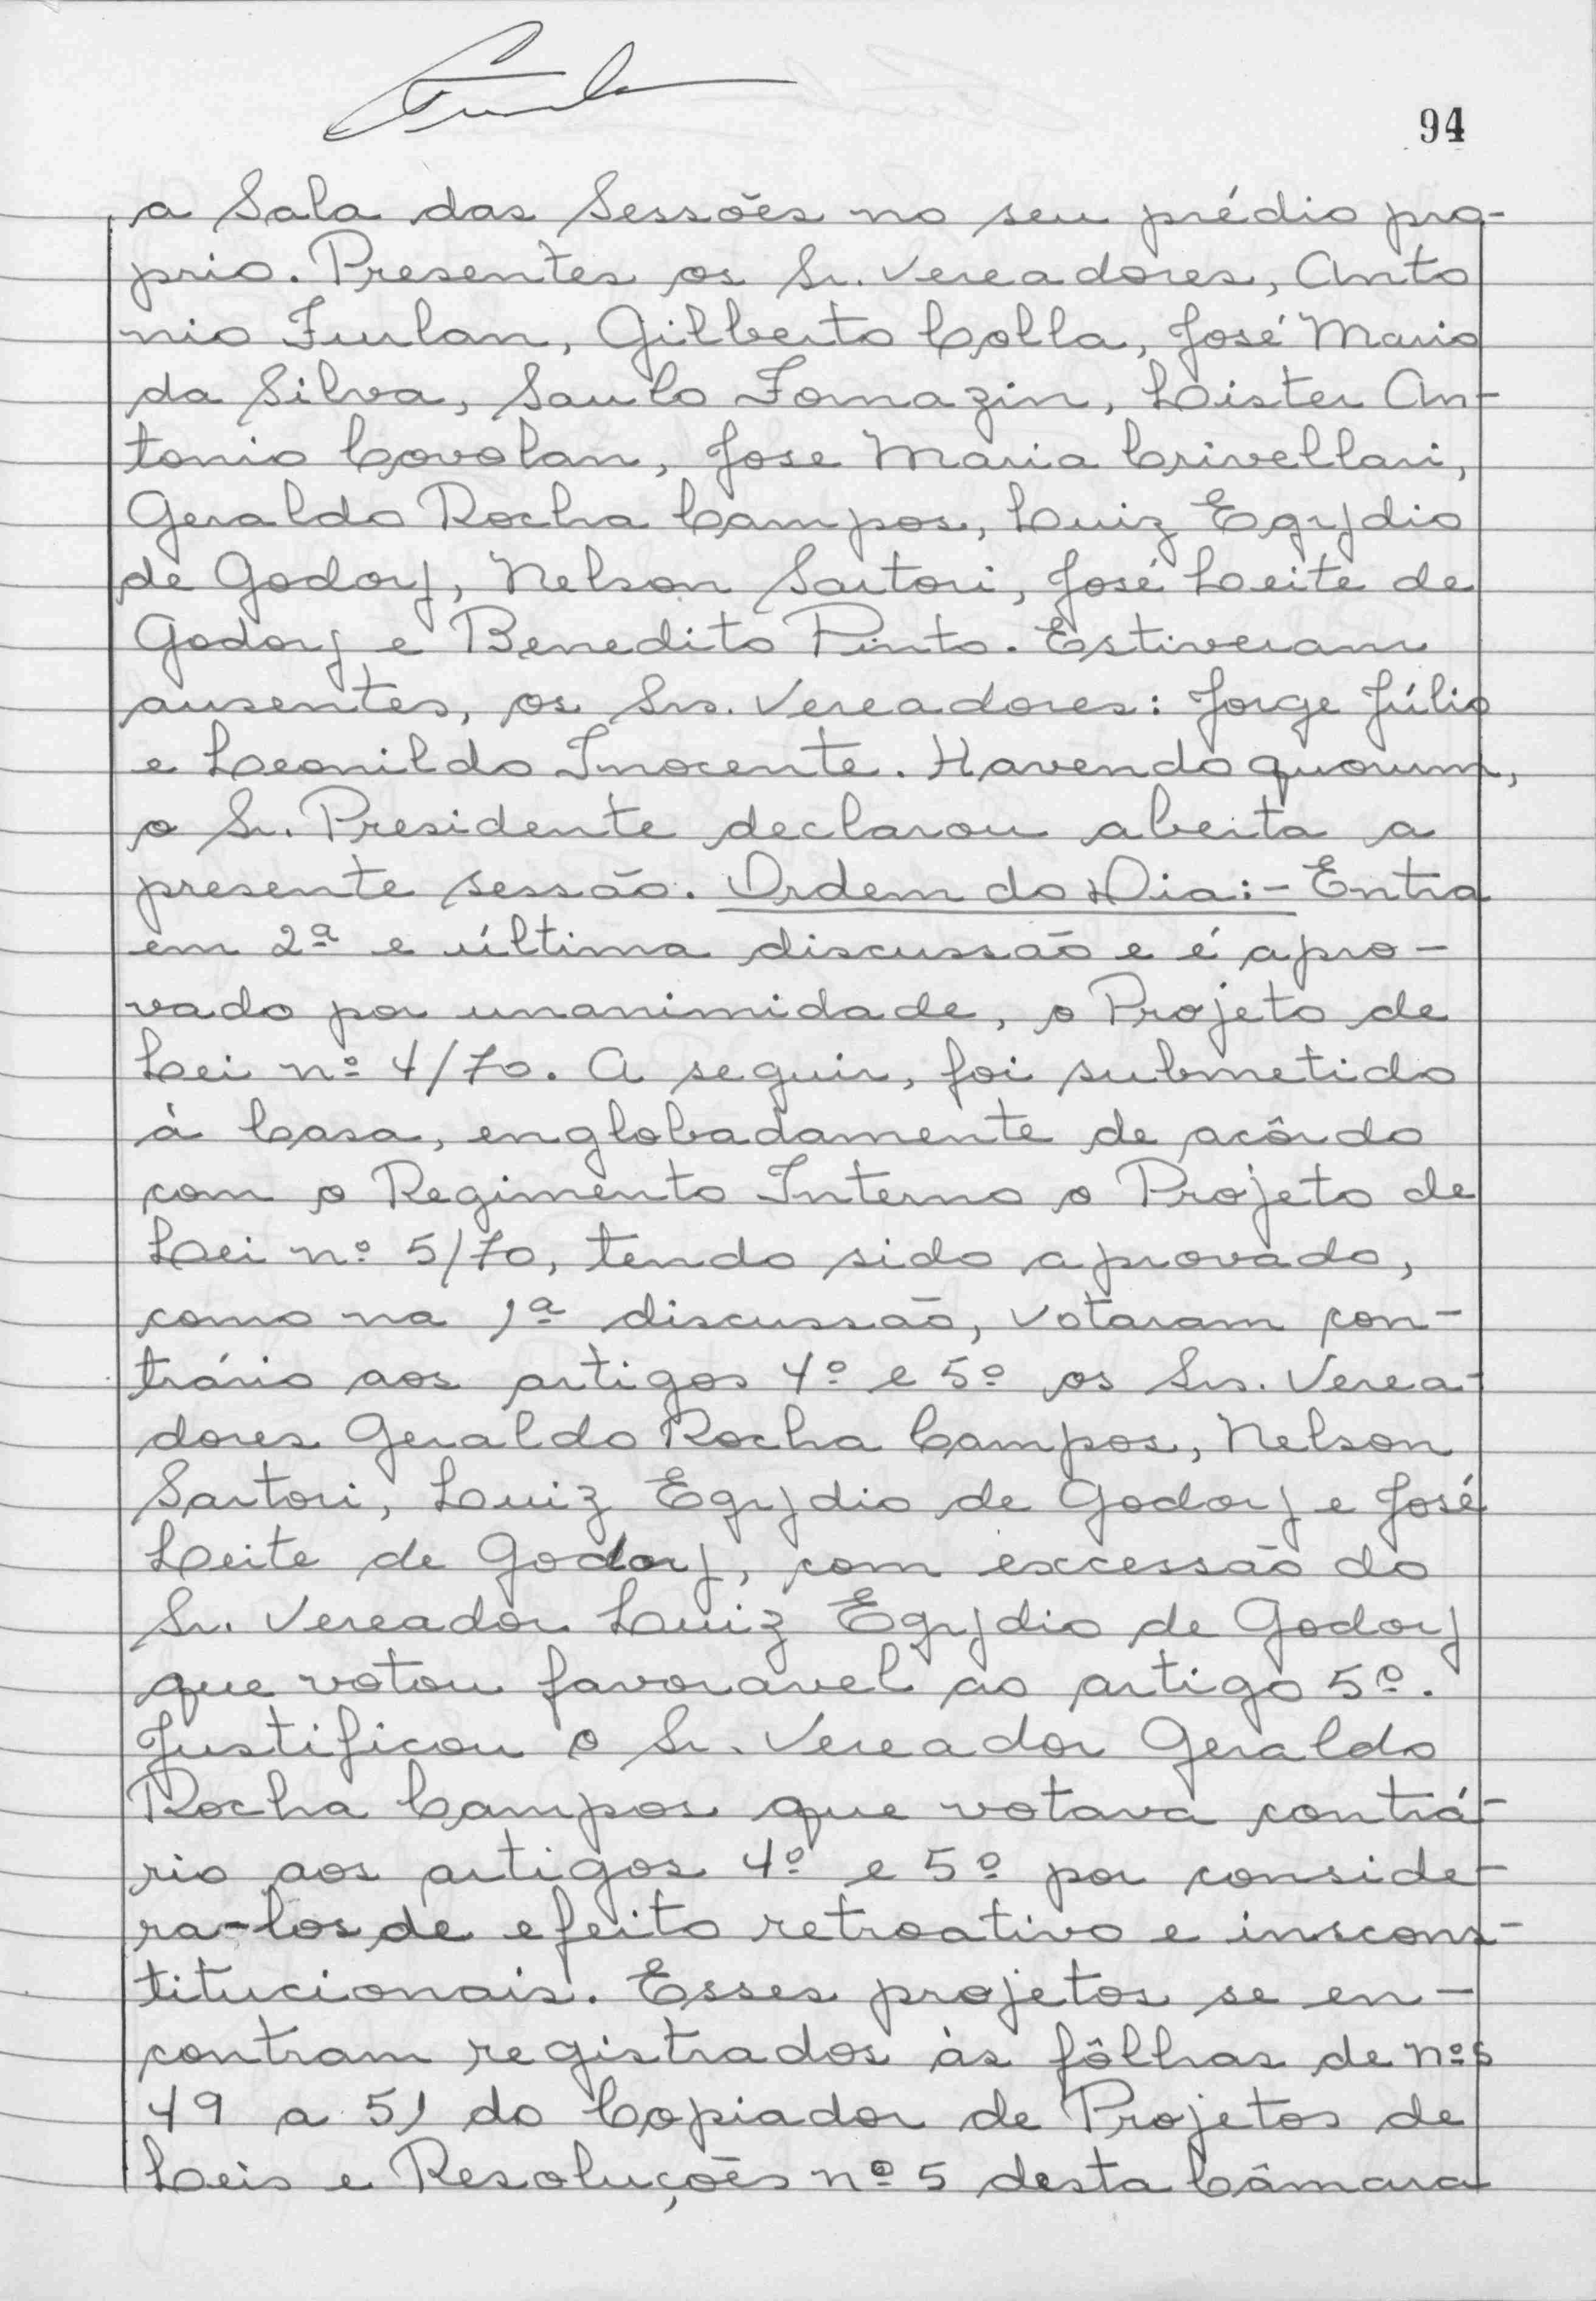 94
a Sala das Sessões no seu prédio pro-
prio. Presentes os Sr. Vereadores, Anto
nio Furlan, Gilberto Colla, José Maria
da Silva, Saulo Fornazin, Lister An-
tonio Covolan, Jose Maria Crivellari,
Geraldo Rocha Campos, Luiz Egydio
de Godoy, Nelson Sartori, José Leite de
Godoy e Benedito Pinto. Estiveram
ausentes, os Srs. Vereadores: Jorge Júlio
e Leonildo Inocente. Havendo quorum,
o Sr. Presidente declarou aberta a
presente sessão. Ordem do Dia:- Entra
em 2ª e última discussão e é apro-
vado por unanimidade, o Projeto de
Lei nº 4/70. A seguir, foi submetido
à Casa, englobadamente de acôrdo
com o Regimento Interno o Projeto de
Lei nº 5/70, tendo sido aprovado,
como na 1ª discussão, votaram con-
trário aos artigos 4º e 5º os Srs. Verea-
dores Geraldo Rocha Campos, Nelson
Sartori, Luiz Egydio de Godoy e José
Leite de Godoy, com excessão do
Sr. Vereador Luiz Egydio de Godoy
que votou favoravel ao artigo 5º.
Justificou o Sr. Vereador Geraldo
Rocha Campos que votava contrá-
rio aos artigos 4º e 5º por conside-
ra-los de efeito retroativo e inscons-
titucionais. Esses projetos se en-
contram registrados às fôlhas de nºs
49 a 51 do Copiador de Projetos de
Leis e Resoluções nº 5 desta Câmara